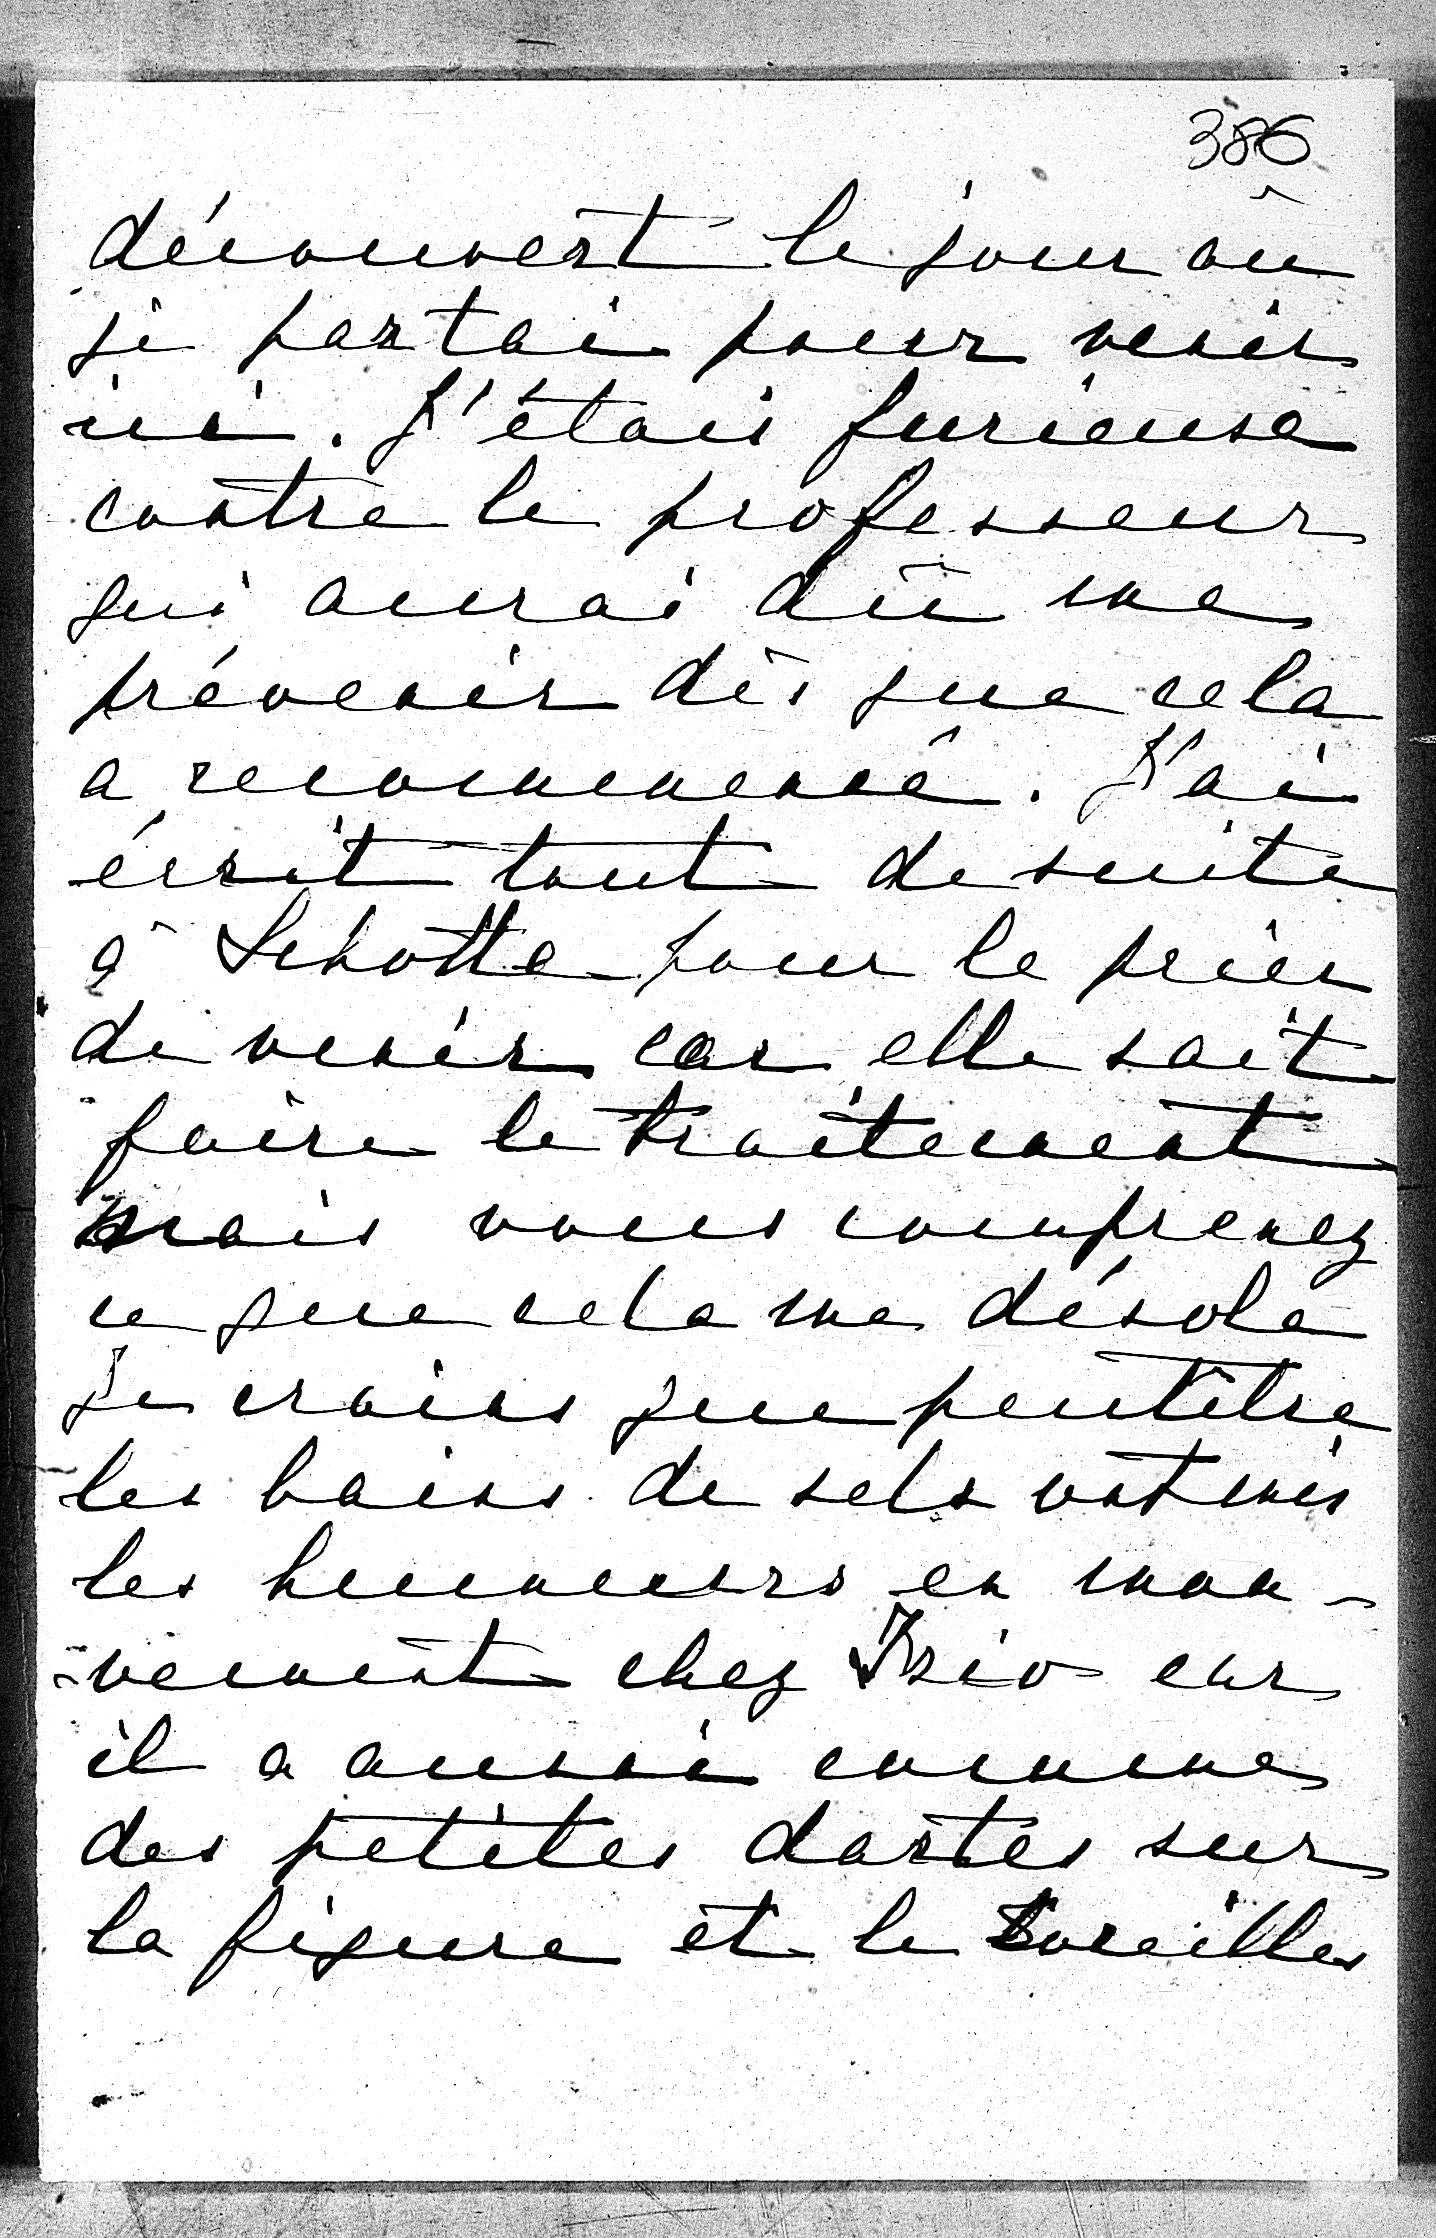 386
découvert le jour où
je partai pour venir
ici. J'étais furieuse
contre le professeur
qui aurai dû me
prévenir dès que cela
a recommencé. J'ai
écrit tout de suite
à Schotte pour le prier
de venir car elle sait
faire le traitement
mais vous comprenez
ce que cela me désole
Je crains que peutêtre
les bains de sels ont mis
les humeurs en mou-
-vement chez car
il a aussi comme
des petites dartes sur
la figure et le oreilles